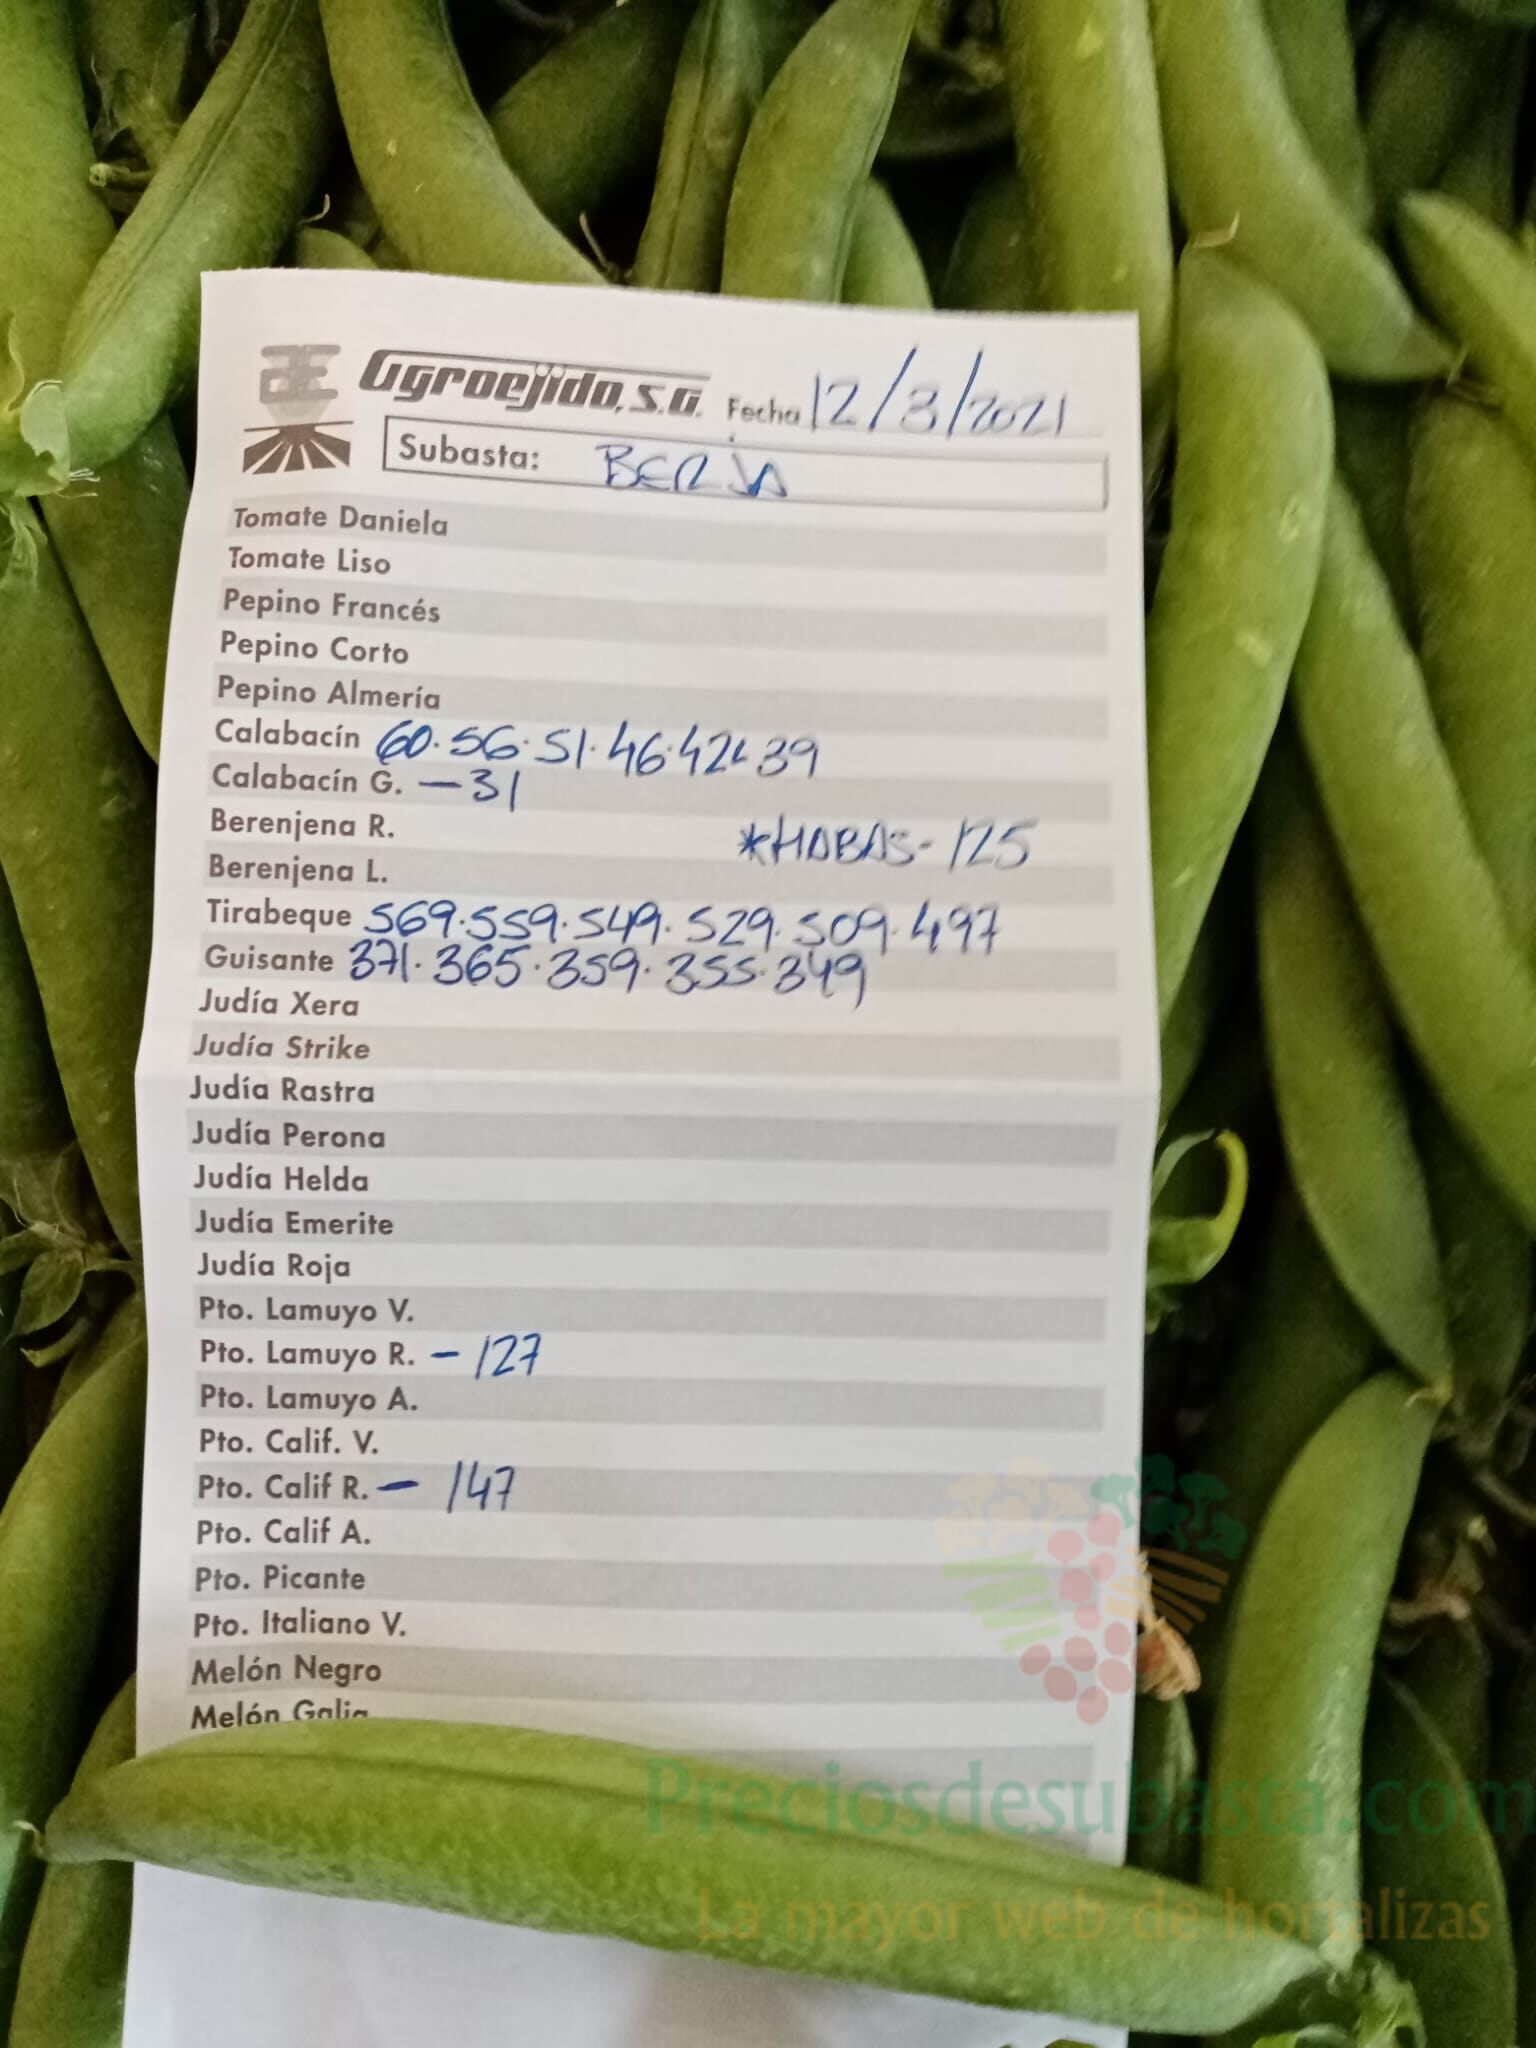 AE Agroejido, S.A. Fecha 12/3/2021
Subasta: BERJA
Tomate Daniela
Tomate Liso
Pepino Francés
Pepino Corto
Pepino Almería
Calabacín 60.56.51.46.42 39
Calabacín G. - 31
Berenjena R. *HABAS- 125
Berenjena L.
Tirabeque 569.559.549.529.509.497
Guisante 371.365.359.355.349
Judía Xera
Judía Strike
Judía Rastra
Judía Perona
Judía Helda
Judía Emerite
Judía Roja
Pto. Lamuyo V.
Pto. Lamuyo R. - 127
Pto. Lamuyo A.
Pto. Calif. V.
Pto. Calif R. - 147
Pto. Calif A.
Pto. Picante
Pto. Italiano V.
Melón Negro
Melón Galia
Preciosdesubasta.com
La mayor web de hortalizas